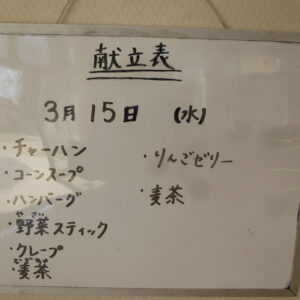 献立表
3月15日 (水)
・チャーハン
・コーンスープ
・ハンバーグ
やさい
・野菜スティック
・クレープ
むぎちゃ
・麦茶
・りんごゼリー
・麦茶